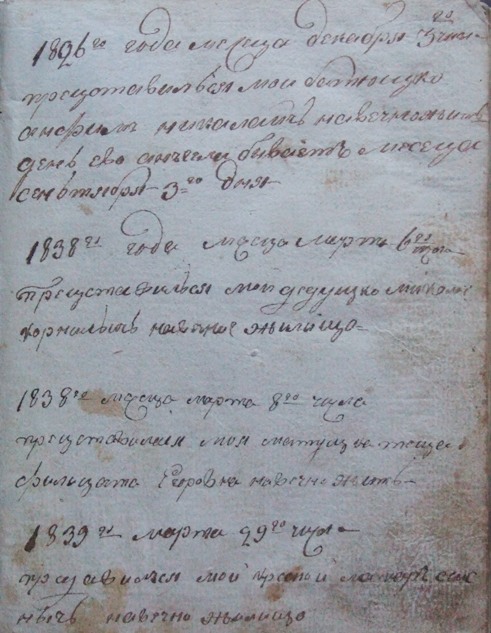 1826го года месеца декабря 5го числ
преставилься мои батюшко
анфимъ николаичь навечножить
день ево ангела бываетъ месеца
сеньтября 3=го дня
1838го года месца марта 6го числа
преставилься мои дедушко
корнилычь навечное жилище
1838го месеца марта 8го числа
преставилися моя матушка теща
Егоровна навечно жить
1839го марта 29го числа
преставилься мои крестной
навечно жилище